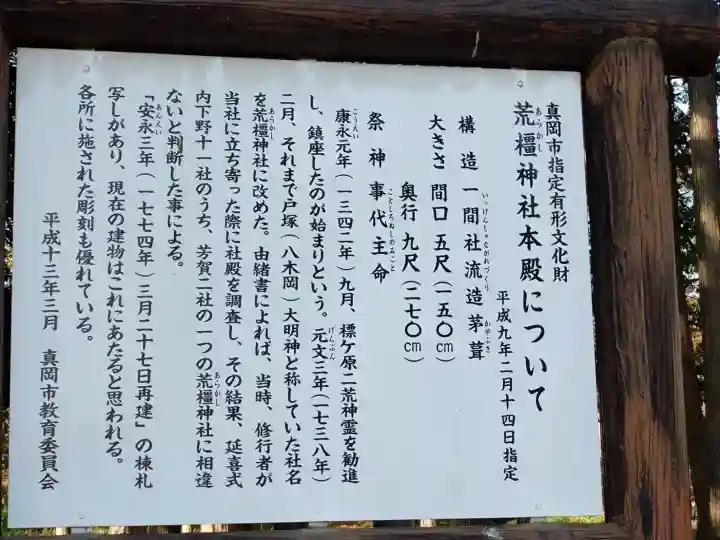 真岡市指定有形文化財
荒橿神社本殿について
あらかし
平成九年二月十四日指定
構造 一間社流造茅葺
いっけんしゃながれづくり かやぶき
大きさ 間口 五尺(一五〇㎝)
奥行 九尺(二七〇㎝)
祭神 事代主命
ことしろぬしのみこと
康永元年(一三四二年)九月、標ケ原二荒神霊を勧進
こうえい
し、鎮座したのが始まりという。元文三年(一七三八年)
げんぶん
二月、それまで戸塚(八木岡)大明神と称していた社名
を荒橿神社に改めた。由緒書によれば、当時、修行者が
あらかし
当社に立ち寄った際に社殿を調査し、その結果、延喜式
内下野十一社のうち、芳賀二社の一つの荒橿神社に相違
あらかし
ないと判断した事による。
「安永三年(一七七四年)三月二十七日再建」の棟札
あんえい
写しがあり、現在の建物はこれにあたると思われる。
各所に施された彫刻も優れている。
平成十三年三月 真岡市教育委員会